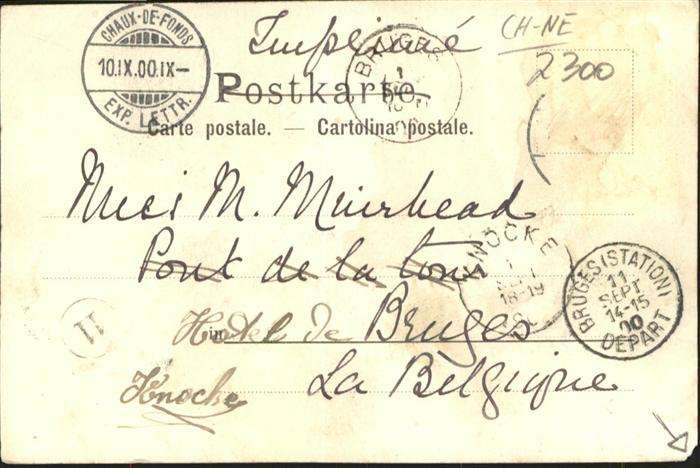 Imprimé
CH-NE
2300
CHAUX-DE-FONDS
10.IX.00.IX—
EXP. LETTR.
BRUGES
Postkarte.
Carte postale. — Cartolina postale.
Miss M. Muirhead
Pont de la tour
KNOCKE
18-19
BRUGES (STATION)
11
SEPT
14-15
00
DEPART
11
Hotel de Bruges
in
Knocke
La Belgique